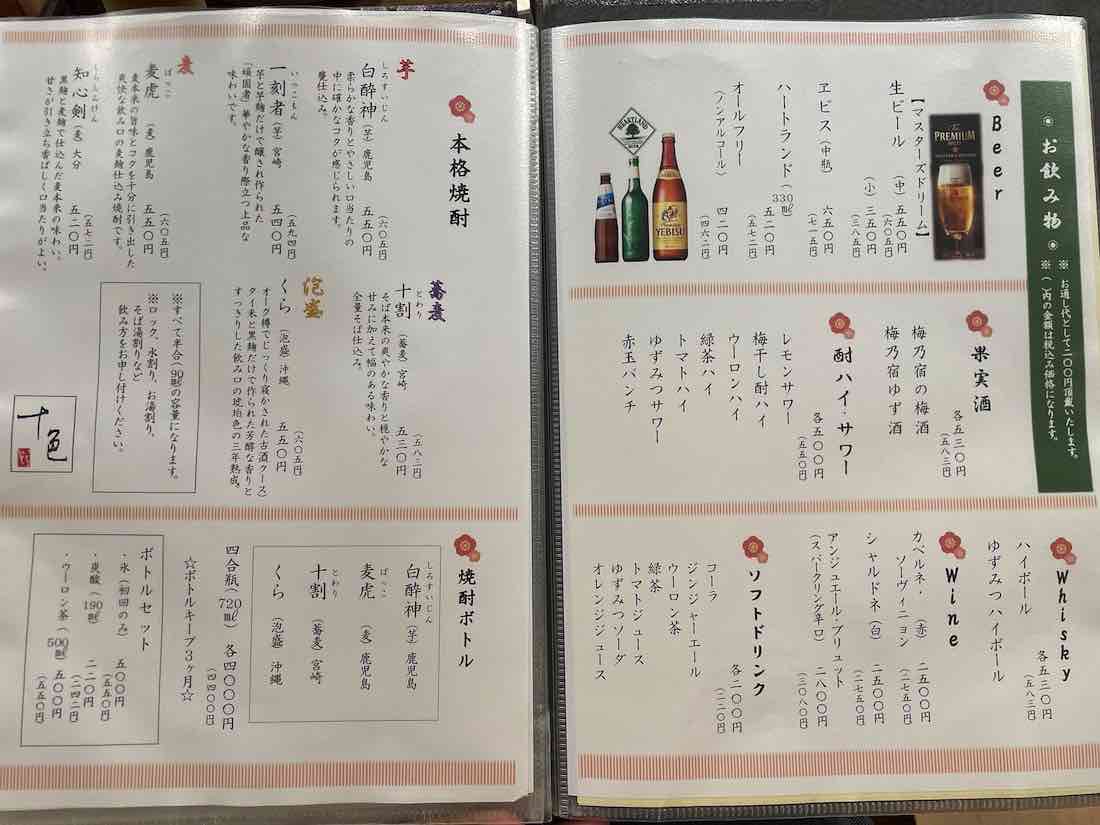 お飲み物
※お通し代として二〇〇円頂戴いたします。
※( )内の金額は税込み価格になります。
Beer
PREMIUM
【マスターズドリーム】
生ビール
(中)五五〇円
(六〇五円)
(小)三五〇円
(三八五円)
ヱビス(中瓶)
六五〇円
(七一五円)
ハートランド(330㎖)
五二〇円
(五七二円)
オールフリー
(ノンアルコール)
四二〇円
(四六二円)
HEARTLAND
YEBISU
果実酒
各五三〇円
(五八三円)
梅乃宿の梅酒
梅乃宿ゆず酒
酎ハイ・サワー
各五〇〇円
(五五〇円)
レモンサワー
梅干し酎ハイ
ウーロンハイ
緑茶ハイ
トマトハイ
ゆずみつサワー
赤玉パンチ
Whisky
各五三〇円
(五八三円)
ハイボール
ゆずみつハイボール
Wine
カベルネ・(赤)
ソーヴィニョン
二五〇〇円
(二七五〇円)
シャルドネ(白)
二五〇〇円
(二七五〇円)
アンジュエール・ブリュット
(スパークリング辛口)
二八〇〇円
(三〇八〇円)
ソフトドリンク
各二〇〇円
(二二〇円)
コーラ
ジンジャーエール
ウーロン茶
緑茶
トマトジュース
ゆずみつソーダ
オレンジジュース
本格焼酎
芋
しろすいじん
白酔神(芋)鹿児島
五五〇円
(六〇五円)
柔らかな香りとやさしい口当たりの
中に確かなコクが感じられます。
甕仕込み。
いっこもん
一刻者(芋)宮崎
五四〇円
(五九四円)
芋と芋麹だけで醸され作られた
「頑固者」華やかな香り際立つ上品な
味わいです。
麦
ばっこ
麦虎(麦)鹿児島
五五〇円
(六〇五円)
麦本来の旨味とコクを十分に引き出した
爽快な飲み口の麦麹仕込み焼酎です。
ししんけん
知心剣(麦)大分
五二〇円
(五七二円)
黒麹と麦麹で仕込んだ麦本来の味わい。
甘さが引き立ち香ばしく口当たりがよい。
蕎麦
とわり
十割(蕎麦)宮崎
五三〇円
(五八三円)
そば本来の爽やかな香りと穏やかな
甘みに加えて幅のある味わい。
全量そば仕込み。
泡盛
くら(泡盛)沖縄
五五〇円
(六〇五円)
オーク樽でじっくり寝かされた古酒(クース)
タイ米と黒麹だけで作られた芳醇な香りと
すっきりした飲み口の琥珀色の三年熟成。
※すべて半合(90㎖)の容量になります。
※ロック、水割り、お湯割り、
そば湯割りなど
飲み方をお申し付けください。
十色
焼酎ボトル
しろすいじん
白酔神(芋)鹿児島
ばっこ
麦虎(麦)鹿児島
とわり
十割(蕎麦)宮崎
くら(泡盛)沖縄
四合瓶(720㎖)各四〇〇〇円
(四四〇〇円)
☆ボトルキープ3ヶ月☆
ボトルセット
・氷(初回のみ)
五〇〇円
(五五〇円)
・炭酸(190㎖)
二二〇円
(二四二円)
・ウーロン茶(500㎖)
五〇〇円
(五五〇円)